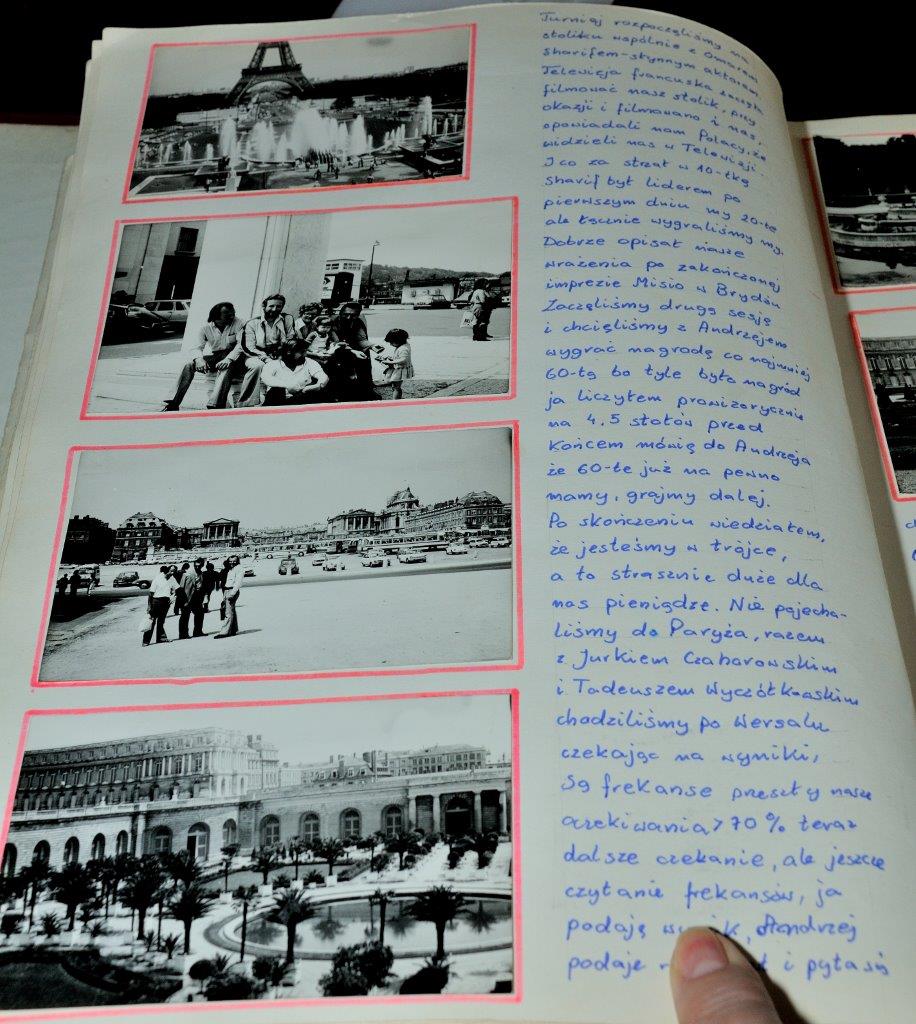 Turniej rozpoczęliśmy na
stoliku wspólnie z Omarem
Sharifem-słynnym aktorem
Telewizja francuska zaczęła
filmować nasz stolik, przy
okazji i filmowano i nas,
opowiadali nam Polacy, że
widzieli nas w Telewizji.
I co za strzał w 10-tkę
Sharif był liderem po
pierwszym dniu my 20-te
ale łącznie wygraliśmy my.
Dobrze opisał nasze
wrażenia po zakończonej
imprezie Misio w Brydżu
Zaczęliśmy drugą sesję
i chcieliśmy z Andrzejem
wygrać nagrodę co najmniej
60-tą bo tyle było nagród
ja liczyłem prowizorycznie
na 4,5 stołów przed
końcem mówię do Andrzeja
że 60-te już na pewno
mamy, grajmy dalej.
Po skończeniu wiedziałem,
że jesteśmy w trójce,
a to strasznie duże dla
nas pieniądze. Nie pojecha-
liśmy do Paryża, razem
z Jurkiem Czaborowskim
i Tadeuszem Wyczółkowskim
chodziliśmy po Wersalu
czekając na wyniki,
Są frekanse przeszły nasze
oczekiwania > 70 % teraz
dalsze czekanie, ale jeszcze
czytanie frekansów, ja
podaję Andrzej
podaje i pyta się